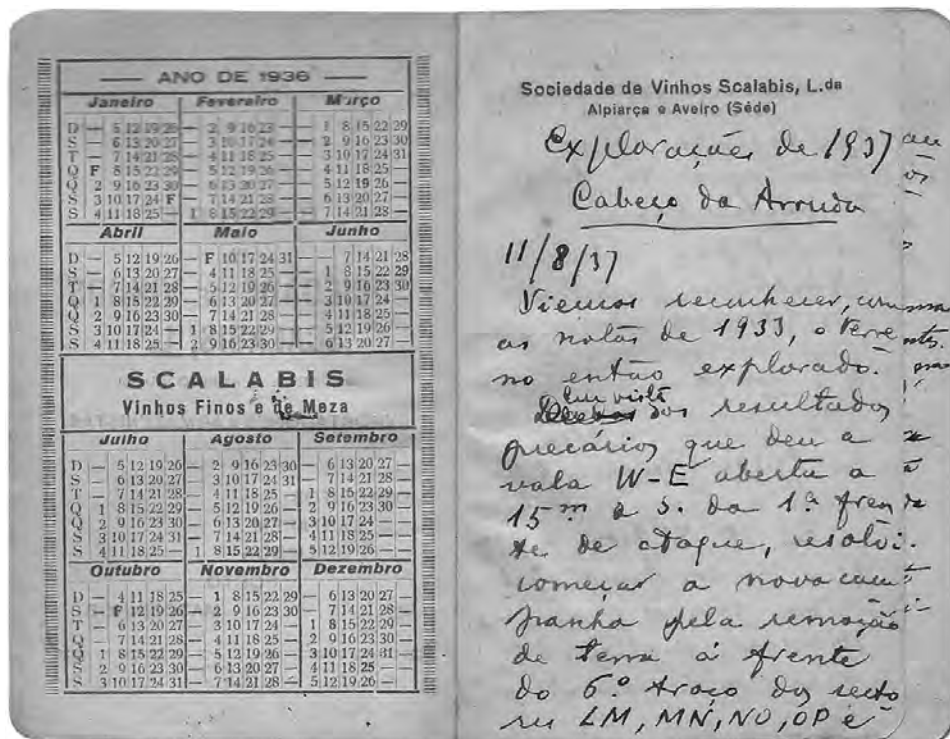 ANO DE 1936
Janeiro Fevereiro Março
D — 5 12 19 26 — 2 9 16 23 — — 1 8 15 22 29
S — 6 13 20 27 — 3 10 17 24 — — 2 9 16 23 30
T — 7 14 21 28 — 4 11 18 25 — — 3 10 17 24 31
Q F 8 15 22 29 — 5 12 19 26 — — 4 11 18 25 —
Q 2 9 16 23 30 — 6 13 20 27 — — 5 12 19 26 —
S 3 10 17 24 F — 7 14 21 28 — — 6 13 20 27 —
S 4 11 18 25 — 1 8 15 22 29 — — 7 14 21 28 —
Abril Maio Junho
D — 5 12 19 26 — F 10 17 24 31 — — 7 14 21 28
S — 6 13 20 27 — 4 11 18 25 — — 1 8 15 22 29
T — 7 14 21 28 — 5 12 19 26 — — 2 9 16 23 30
Q 1 8 15 22 29 — 6 13 20 27 — — 3 10 17 24 —
Q 2 9 16 23 30 — 7 14 21 28 — — 4 11 18 25 —
S 3 10 17 24 — 1 8 15 22 29 — — 5 12 19 26 —
S 4 11 18 25 — 2 9 16 23 30 — — 6 13 20 27 —
SCALABIS
Vinhos Finos e de Meza
Julho Agosto Setembro
D — 5 12 19 26 — 2 9 16 23 30 — 6 13 20 27 —
S — 6 13 20 27 — 3 10 17 24 31 — 7 14 21 28 —
T — 7 14 21 28 — 4 11 18 25 — 1 8 15 22 29 —
Q 1 8 15 22 29 — 5 12 19 26 — 2 9 16 23 30 —
Q 2 9 16 23 30 — 6 13 20 27 — 3 10 17 24 —
S 3 10 17 24 31 — 7 14 21 28 — 4 11 18 25 —
S 4 11 18 25 — 1 8 15 22 29 — 5 12 19 26 —
Outubro Novembro Dezembro
D — 4 11 18 25 — 1 8 15 22 29 — 6 13 20 27
S — F 12 19 26 — 2 9 16 23 30 — 7 14 21 28
T — 6 13 20 27 — 3 10 17 24 — 1 8 15 22 29
Q — 7 14 21 28 — 4 11 18 25 — 2 9 16 23 30
Q 1 8 15 22 29 — 5 12 19 26 — 3 10 17 24 31
S 2 9 16 23 30 — 6 13 20 27 — 4 11 18 25 —
S 3 10 17 24 31 — 7 14 21 28 — 5 12 19 26 —
Sociedade de Vinhos Scalabis, L.da
Alpiarça e Aveiro (Séde)
Explorações de 1937
Cabeço da Arruda
11/8/37
Viemos reconhecer, com
as notas de 1933, o terre
no então explorado.
Em vista
dos resultados
precários que deu a
vala W-E aberta a
15m a S. da 1ª fren
te de ataque, resolvi
começar a nova cam
panha pela remoção
de terra à frente
do 6.º traço dos secto
res LM, MN, NO, OP e